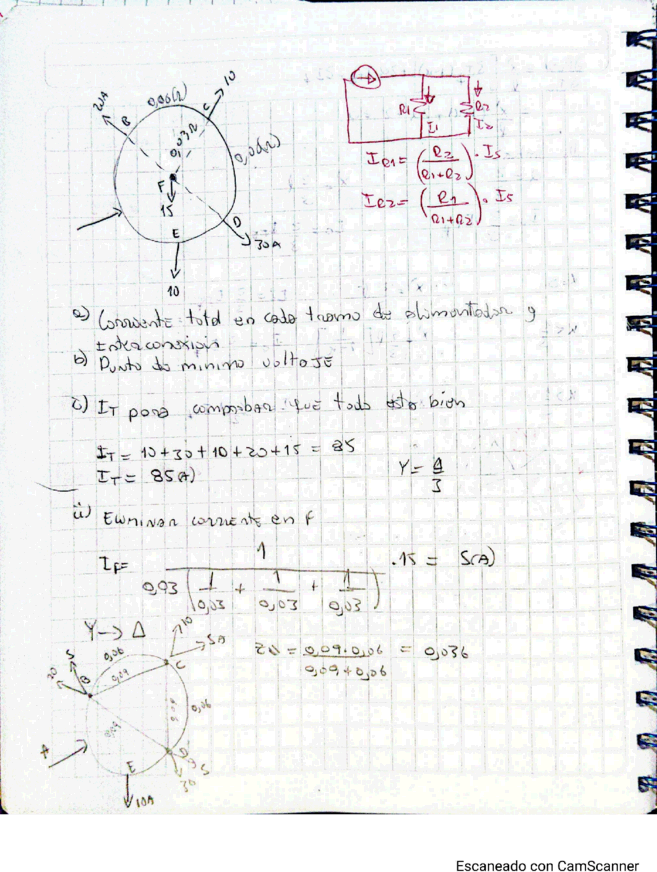 20A
B
0,06(Ω)
C
10
0,03Ω
0,06(Ω)
F
15
D
E
30A
10
R1
R2
I1
I2
IR1 = (R2 / R1+R2) · Is
IR2 = (R1 / R1+R2) · Is
a) Corriente total en cada tramo de alimentador y
Interconexión
b) Punto de minimo voltaje
c) IT para comprobar que todo esta bien
IT = 10+30+10+20+15 = 85
IT = 85(A)
Y = Δ / 3
ii) Eliminar corriente en F
IF = 1 / 0,03 (1/0,03 + 1/0,03 + 1/0,03) · 15 = 5(A)
Y → Δ
10
5A
20
5
B
0,06
0,09
C
0,09
0,09
0,06
ZΔ = 0,09·0,06 / 0,09+0,06 = 0,036
A
D
5
30
E
10A
Escaneado con CamScanner